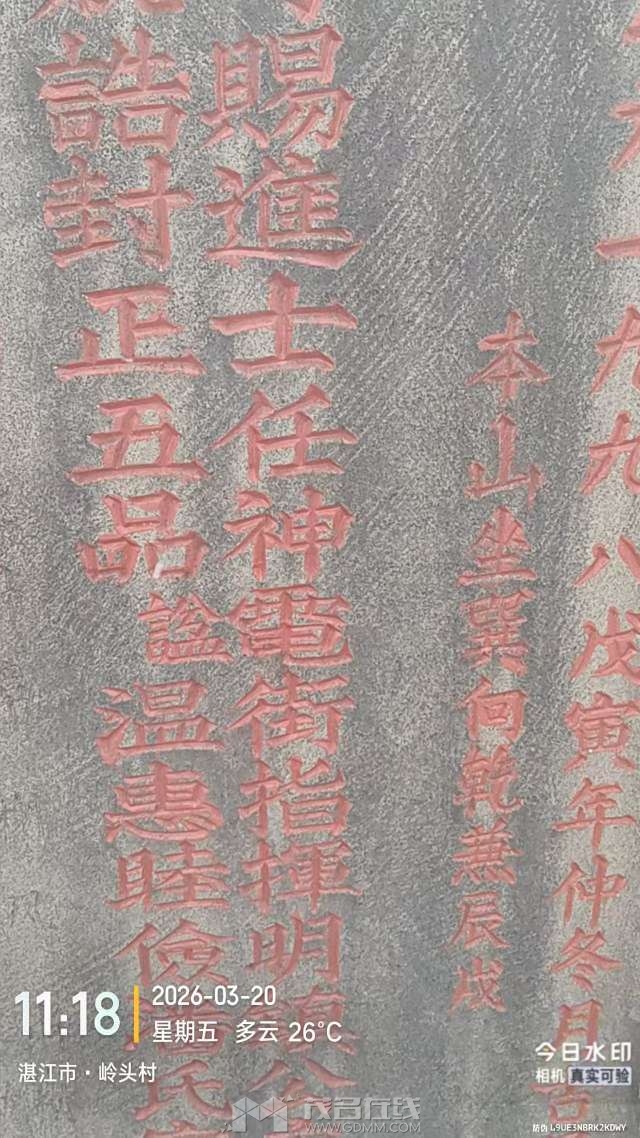 一九九八戊寅年仲冬月吉
本山坐巽向乾兼辰戌
賜進士任神電街指揮明鎮公
誥封正五品諡温惠睦儉
氏
11:18
2026-03-20
星期五 多云 26°C
湛江市·岭头村
今日水印
相机 真实可验
防伪 L9UE3NBRK2KDWY
茂名在线
WWW.GDMM.COM